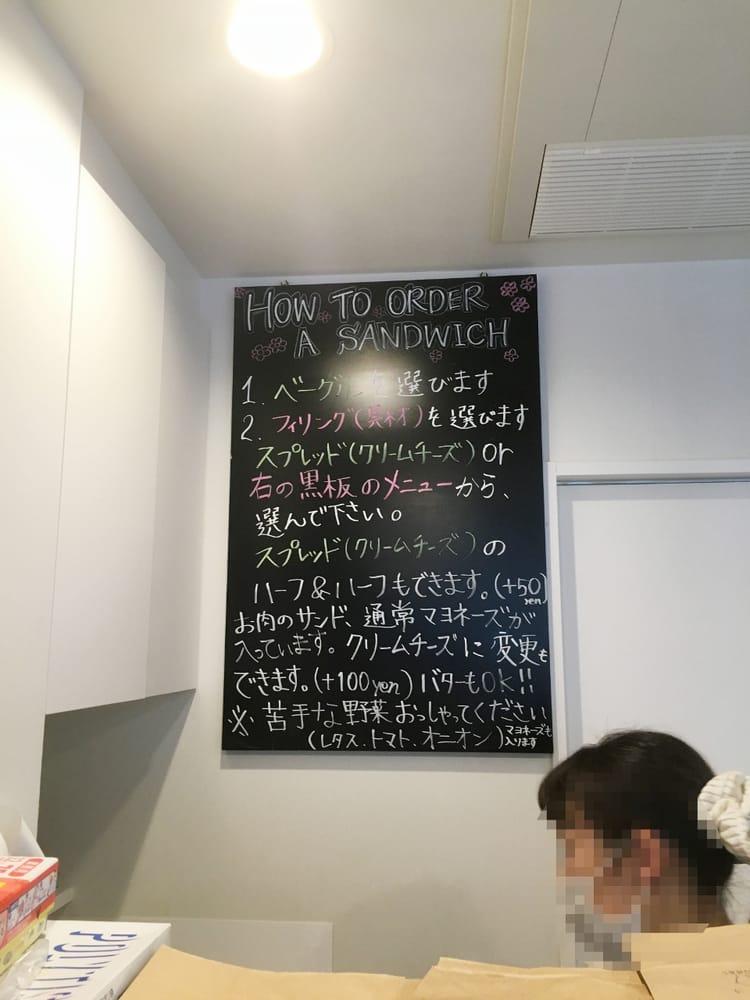 HOW TO ORDER
A SANDWICH
1. ベーグルを選びます
2. フィリング(具材)を選びます
スプレッド(クリームチーズ)or
右の黒板のメニューから、
選んで下さい。
スプレッド(クリームチーズ)の
ハーフ&ハーフもできます。(+50yen)
お肉のサンド、通常マヨネーズが
入っています。クリームチーズに変更も
できます。(+100yen) バターもOK!!
※苦手な野菜おっしゃってください
(レタス.トマト.オニオン)マヨネーズも入ります